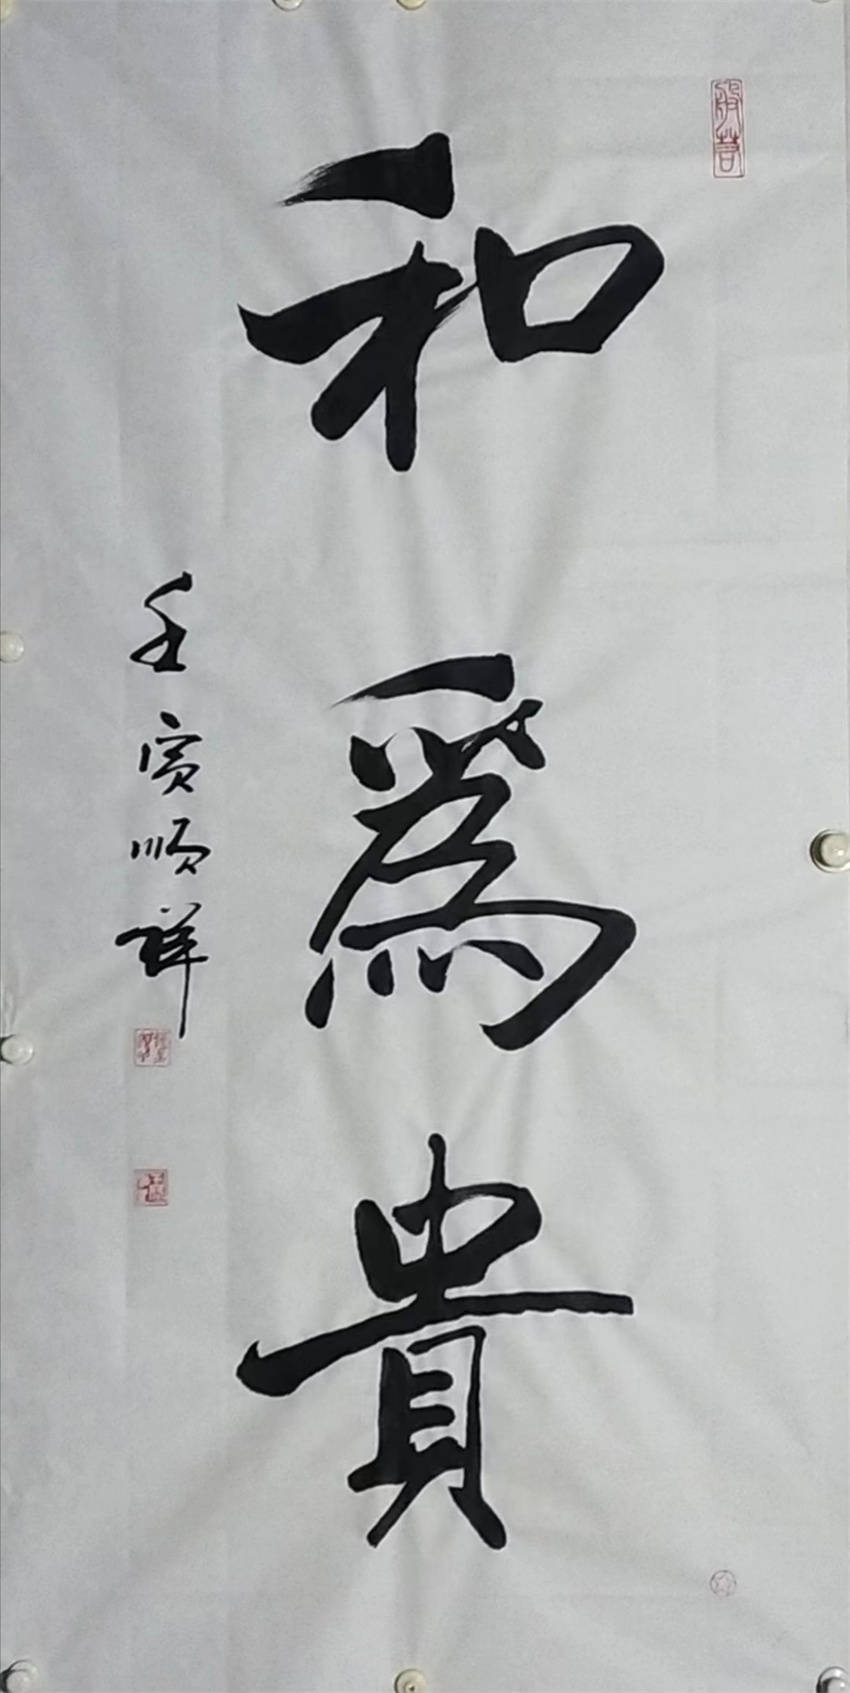 和爲貴
壬寅順祥